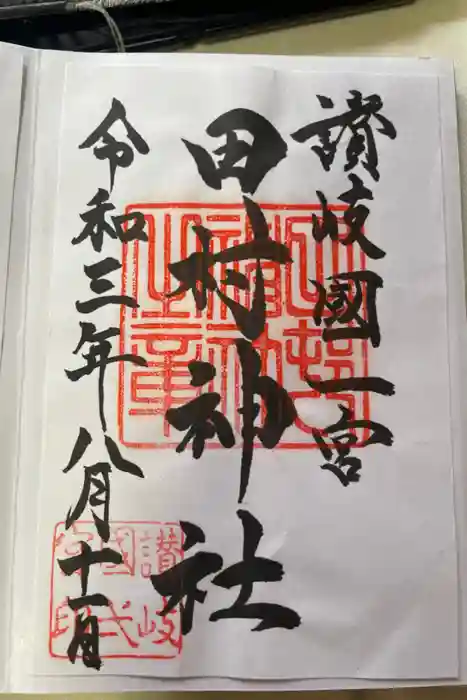 讃岐國一宮
田村神社
令和三年八月十一日
讃岐
國弌
宮印